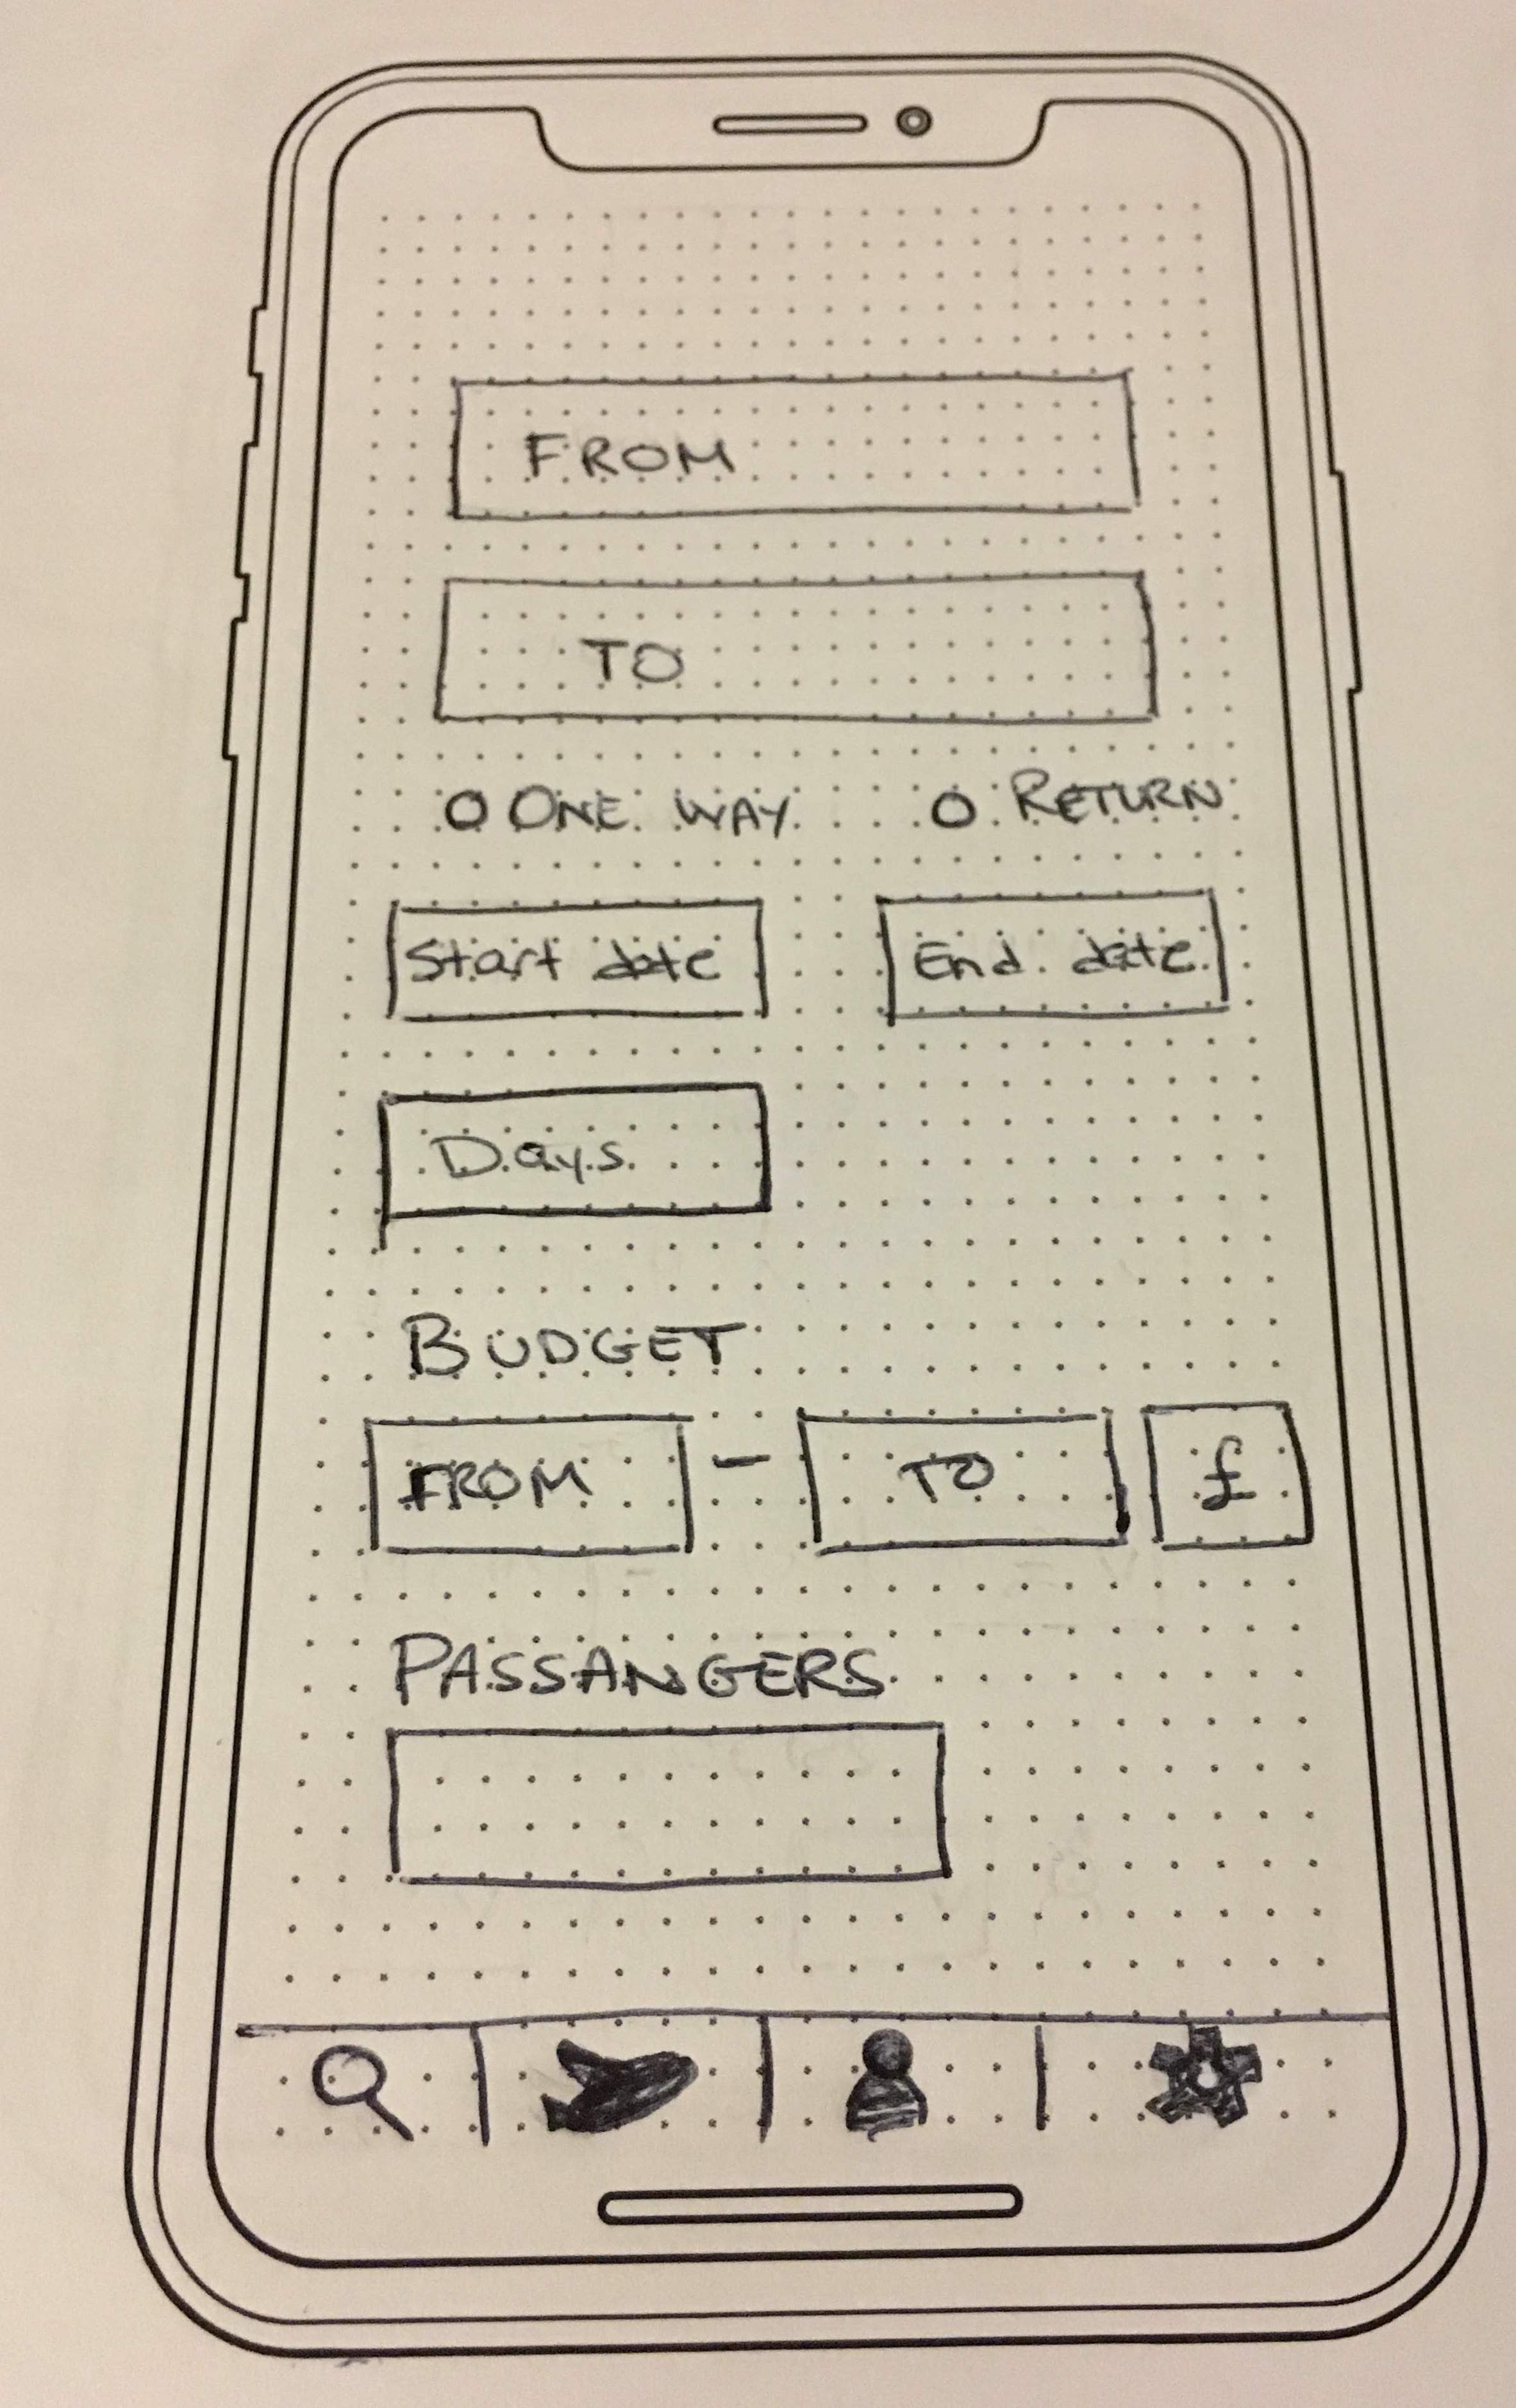 FROM
TO
ONE WAY RETURN
Start date End date
Days
BUDGET
FROM - TO £
PASSANGERS